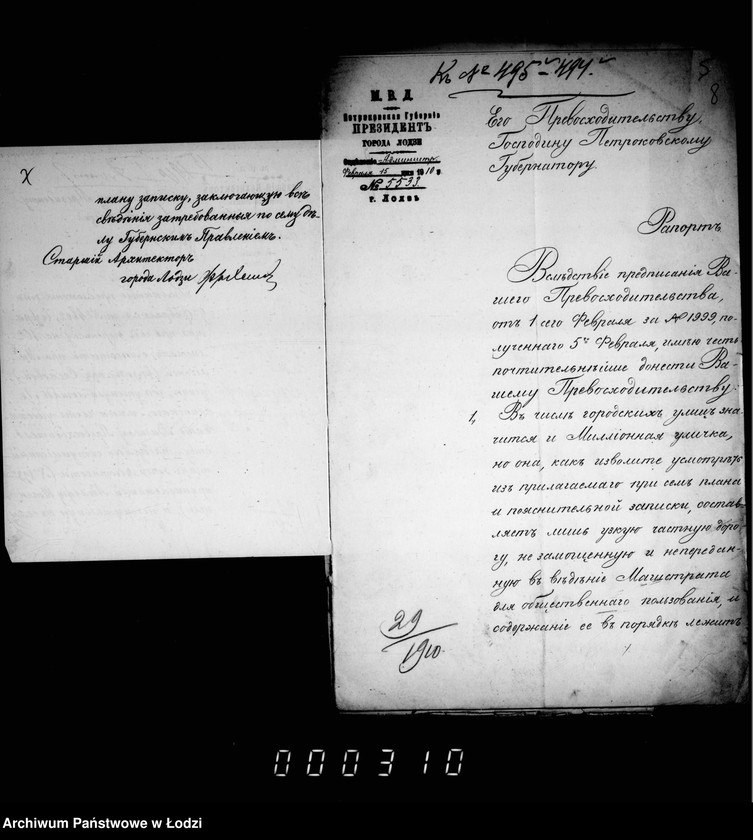 х
плану записку, заключающую всѣ
свѣдѣнія затребованныя по сему дѣ-
лу Губернскимъ Правленіемъ.
Старшій Архитекторъ
города Лодзи
Къ №
8
М. В. Д.
Петроковская Губернія
ПРЕЗИДЕНТЪ
ГОРОДА ЛОДЗИ
Отдѣленіе Администр.
Февраля 15 дня 1910 г.
№ 5533
г. Лодзь
Его Превосходительству,
Господину Петроковскому
Губернатору.
Рапортъ
Вслѣдствіе предписанія Ва-
шего Превосходительства,
отъ 1 сего Февраля за № 1999, по-
лученнаго 5го Февраля, имѣю честь
почтительнѣйше донести Ва-
шему Превосходительству:
1, Въ числѣ городскихъ улицъ зна-
чится и Милліонная уличка,
но она, какъ изволите усмотрѣть
изъ прилагаемаго при семъ плана
и пояснительной записки, состав-
ляетъ лишь узкую частную доро-
гу, не замощенную и непередан-
ную въ вѣдѣніе Магистрата
для общественнаго пользованія, и
содержаніе ее въ порядкѣ лежитъ
29
1910.
000310
Archiwum Państwowe w Łodzi